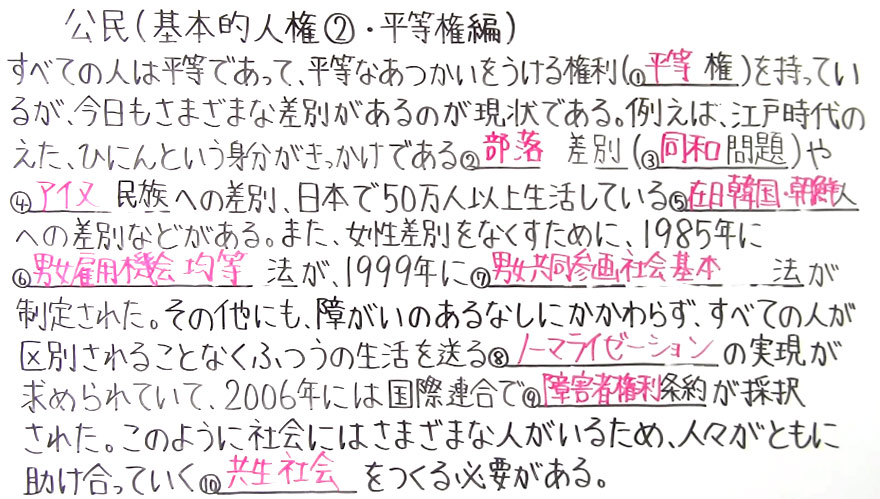 公民(基本的人権②・平等権編)
すべての人は平等であって、平等なあつかいをうける権利(①平等権)を持ってい
るが、今日もさまざまな差別があるのが現状である。例えば、江戸時代の
えた、ひにんという身分がきっかけである②部落差別(③同和問題)や
④アイヌ民族への差別、日本で50万人以上生活している⑤在日韓国・朝鮮人
への差別などがある。また、女性差別をなくすために、1985年に
⑥男女雇用機会均等法が、1999年に⑦男女共同参画社会基本法が
制定された。その他にも、障がいのあるなしにかかわらず、すべての人が
区別されることなくふつうの生活を送る⑧ノーマライゼーションの実現が
求められていて、2006年には国際連合で⑨障害者権利条約が採択
された。このように社会にはさまざまな人がいるため、人々がともに
助け合っていく⑩共生社会をつくる必要がある。